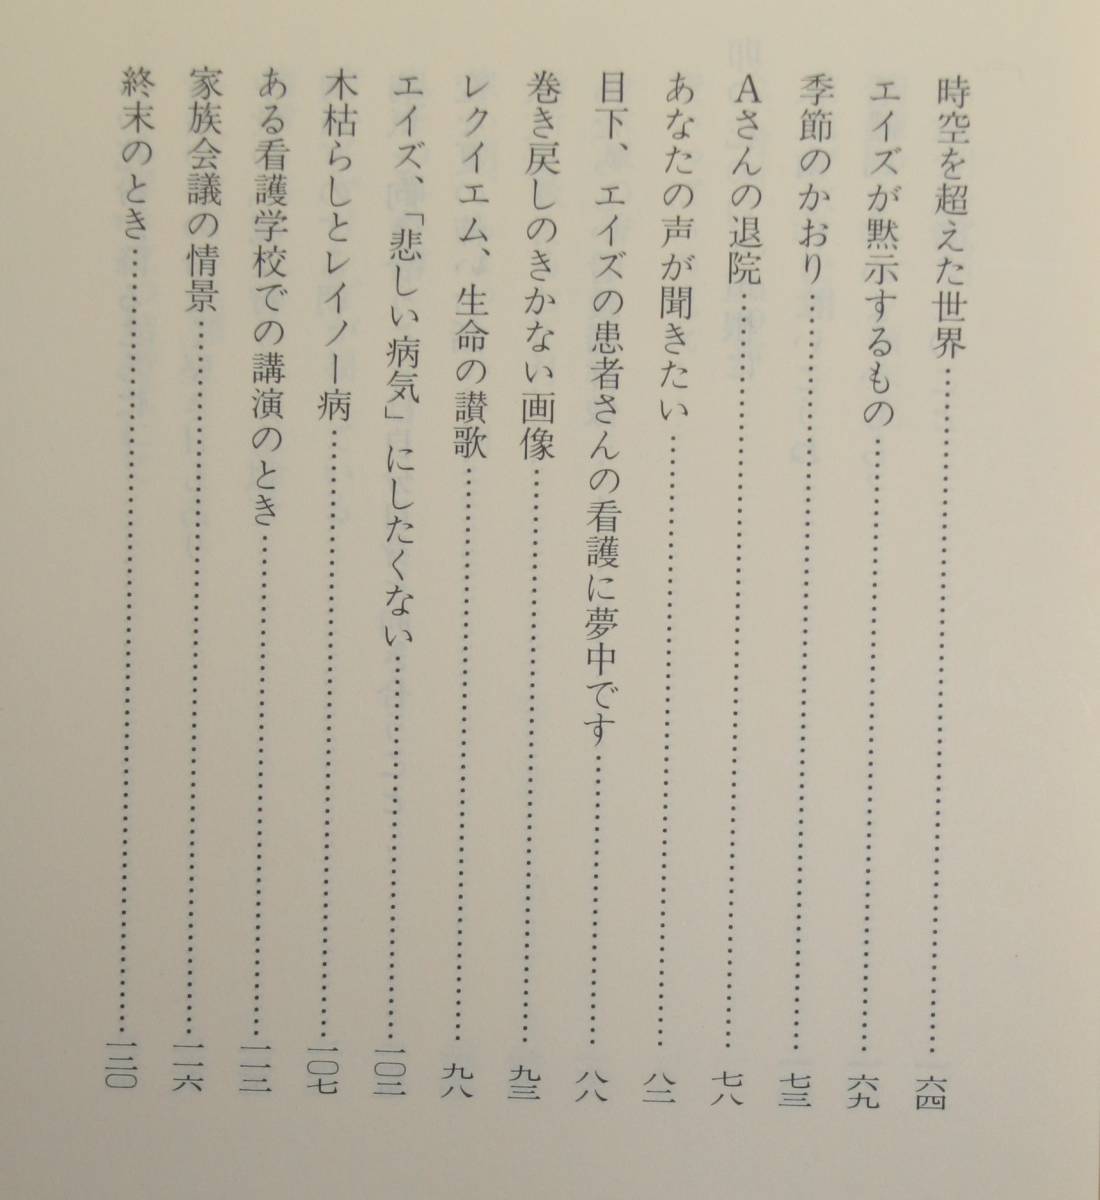 時空を超えた世界……六四
エイズが黙示するもの……六九
季節のかおり……七三
Aさんの退院……七八
あなたの声が聞きたい……八二
目下、エイズの患者さんの看護に夢中です……八八
巻き戻しのきかない画像……九三
レクイエム、生命の讃歌……九八
エイズ、「悲しい病気」にしたくない……一〇二
木枯らしとレイノー病……一〇七
ある看護学校での講演のとき……一一二
家族会議の情景……一一六
終末のとき……一二〇